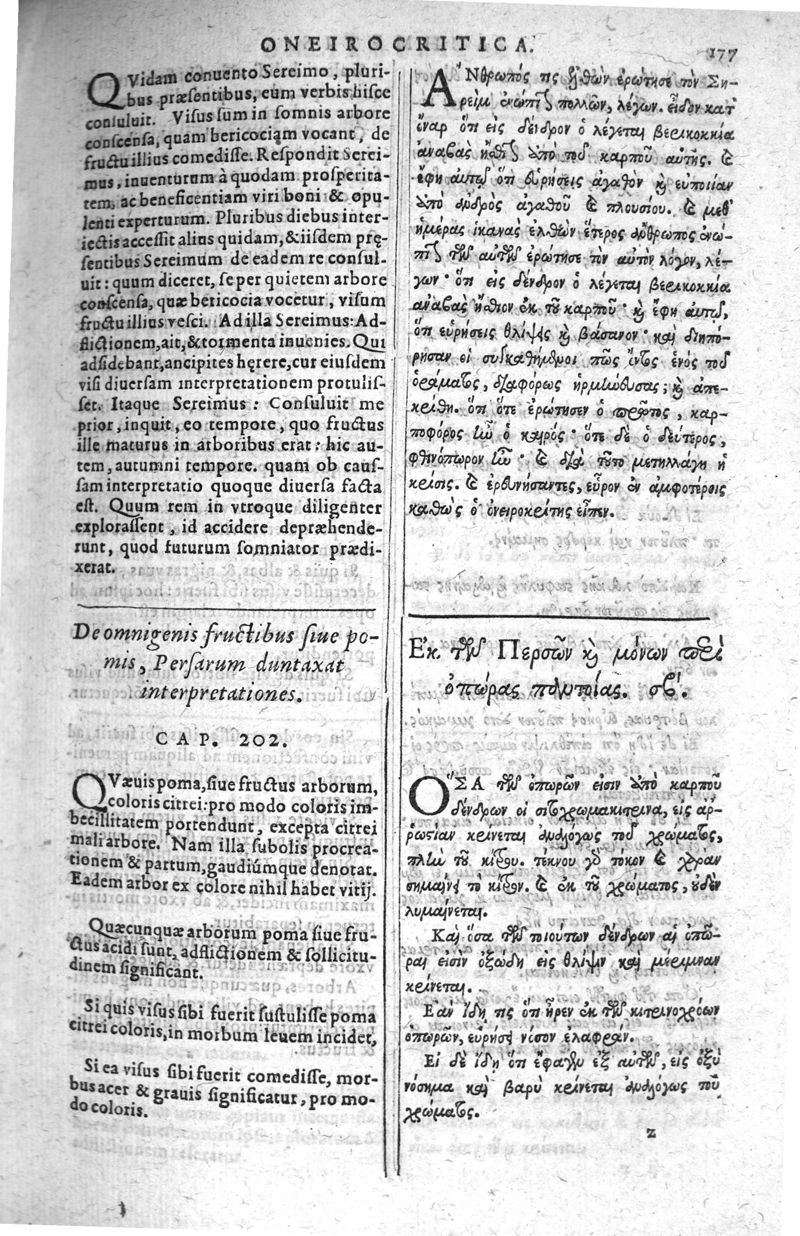 ONEIROCRITICA.
177
QVidam conuento Sereimo, pluri-
bus præsentibus, eum verbis hisce
consuluit. Visus sum in somnis arbore
conscensa, quam bericociam vocant, de
fructu illius comedisse. Respondit Serei-
mus, inuenturum à quodam prosperita-
tem, ac beneficentiam viri boni & opu-
lenti experturum. Pluribus diebus inter-
iectis accessit alius quidam, & iisdem prę-
sentibus Sereimum de eadem re consul-
uit: quum diceret, se per quietem arbore
conscensa, quæ bericocia vocetur, visum
fructu illius vesci. Ad illa Sereimus: Ad-
flictionem, ait, & tormenta inuenies. Qui
adsidebant, ancipites hęrere, cur eiusdem
visi diuersam interpretationem protulis-
set. Itaque Sereimus: Consuluit me
prior, inquit, eo tempore, quo fructus
ille maturus in arboribus erat: hic au-
tem, autumni tempore. quam ob caus-
sam interpretatio quoque diuersa facta
est. Quum rem in vtroque diligenter
explorassent, id accidere depræhende-
runt, quod futurum somniator prædi-
xerat.
De omnigenis fructibus siue po-
mis, Persarum duntaxat
interpretationes.
CAP. 202.
QVæuis poma, siue fructus arborum,
coloris citrei: pro modo coloris im-
becillitatem portendunt, excepta citrei
mali arbore. Nam illa subolis procrea-
tionem & partum, gaudiúmque denotat.
Eadem arbor ex colore nihil habet vitij.
Quæcunquæ arborum poma siue fru-
ctus acidi sunt, adflictionem & sollicitu-
dinem significant.
Si quis visus sibi fuerit sustulisse poma
citrei coloris, in morbum leuem incidet,
Si ea visus sibi fuerit comedisse, mor-
bus acer & grauis significatur, pro mo-
do coloris.
Ἄνθρωπός τις ἐλθὼν ἐρώτησε τὸν Ση-
ρεὶμ ἐνώπιον πολλῶν, λέγων. εἶδον κατ'
ὄναρ ὅτι εἰς δένδρον ὃ λέγεται βερικοκκία
ἀναβὰς ἤσθιον ἀπὸ τοῦ καρποῦ αὐτῆς. καὶ
ἔφη αὐτῷ ὅτι εὑρήσεις ἀγαθὸν καὶ εὐποιίαν
ἀπὸ ἀνδρὸς ἀγαθοῦ καὶ πλουσίου. καὶ μεθ'
ἡμέρας ἱκανὰς ἐλθὼν ἕτερος ἄνθρωπος ἐνώ-
πιον τῶν αὐτῶν ἐρώτησε τὸν αὐτὸν λόγον, λέ-
γων· ὅτι εἰς δένδρον ὃ λέγεται βερικοκκία
ἀναβὰς ἤσθιον ἐκ τοῦ καρποῦ· καὶ ἔφη αὐτῷ,
ὅτι εὑρήσεις θλίψιν καὶ βάσανον· καὶ διηπό-
ρησαν οἱ συγκαθήμενοι πῶς ὄντος ἑνὸς τοῦ
ὁράματος, διαφόρως ἡρμήνευσας; καὶ ἀπε-
κρίθη. ὅτι ὅτε ἐρώτησεν ὁ πρῶτος, καρ-
ποφόρος ἦν ὁ καιρός· ὅτε δὲ ὁ δεύτερος,
φθινόπωρον ἦν· καὶ διὰ τοῦτο μετηλλάγη ἡ
κρίσις. καὶ ἐρευνήσαντες, εὗρον ἐν ἀμφοτέροις
καθὼς ὁ ὀνειροκρίτης εἶπεν.
Ἐκ τῶν Περσῶν καὶ μόνων περὶ
ὀπώρας παντοίας. σβʹ.
ὍΣΑ τῶν ὀπωρῶν εἰσιν ἀπὸ καρποῦ
δένδρων οἱ χρωμακιτρινα, εἰς ἀρ-
ρωστίαν κρίνεται ἀναλόγως τοῦ χρώματος,
πλὴν τοῦ κίτρου. τέκνου γὰρ τόκον καὶ χαρὰν
σημαίνει τὸ κίτρον. καὶ ἐκ τοῦ χρώματος, οὐδὲν
λυμαίνεται.
Καὶ ὅσα τῶν τοιούτων δένδρων αἱ ὀπῶ-
ραι εἰσὶν ὀξώδη εἰς θλίψιν καὶ μέριμναν
κρίνεται.
Ἐὰν ἴδῃ τις ὅτι ᾖρεν ἐκ τῶν κιτρινοχρόων
ὀπωρῶν, εὑρήσει νόσον ἐλαφράν.
Εἰ δὲ ἴδῃ ὅτι ἔφαγεν ἐξ αὐτῶν, εἰς ὀξὺ
νόσημα καὶ βαρὺ κρίνεται ἀναλόγως τοῦ
χρώματος.
z